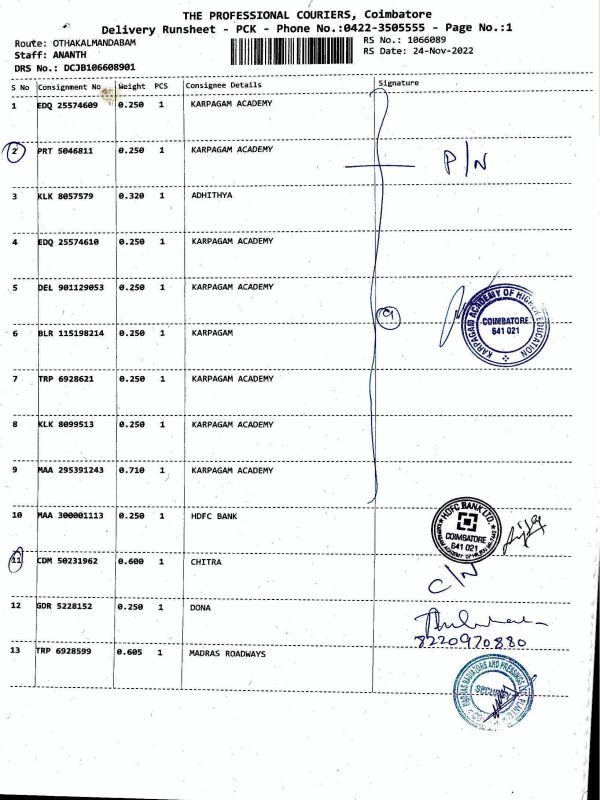 THE PROFESSIONAL COURIERS, Coimbatore
Delivery Runsheet - PCK - Phone No.:0422-3505555 - Page No.:1
Route: OTHAKALMANDABAM
RS No.: 1066089
Staff: ANANTH
RS Date: 24-Nov-2022
DRS No.: DCJB106608901
S No Consignment No Weight PCS Consignee Details Signature
1 EDQ 25574609 0.250 1 KARPAGAM ACADEMY
2 PRT 5046811 0.250 1 KARPAGAM ACADEMY P/N
3 KLK 8057579 0.320 1 ADHITHYA
4 EDQ 25574610 0.250 1 KARPAGAM ACADEMY
5 DEL 901129053 0.250 1 KARPAGAM ACADEMY
KARPAGAM ACADEMY OF HIGHER EDUCATION
COIMBATORE
641 021
6 BLR 115198214 0.250 1 KARPAGAM
7 TRP 6928621 0.250 1 KARPAGAM ACADEMY
8 KLK 8099513 0.250 1 KARPAGAM ACADEMY
9 MAA 295391243 0.710 1 KARPAGAM ACADEMY
10 MAA 300001113 0.250 1 HDFC BANK
HDFC BANK LTD.
COIMBATORE
641 021
11 CDM 50231962 0.600 1 CHITRA C/N
12 GDR 5228152 0.250 1 DONA
8220970880
13 TRP 6928599 0.605 1 MADRAS ROADWAYS
RADIATORS AND PRESSINGS
SECURITY